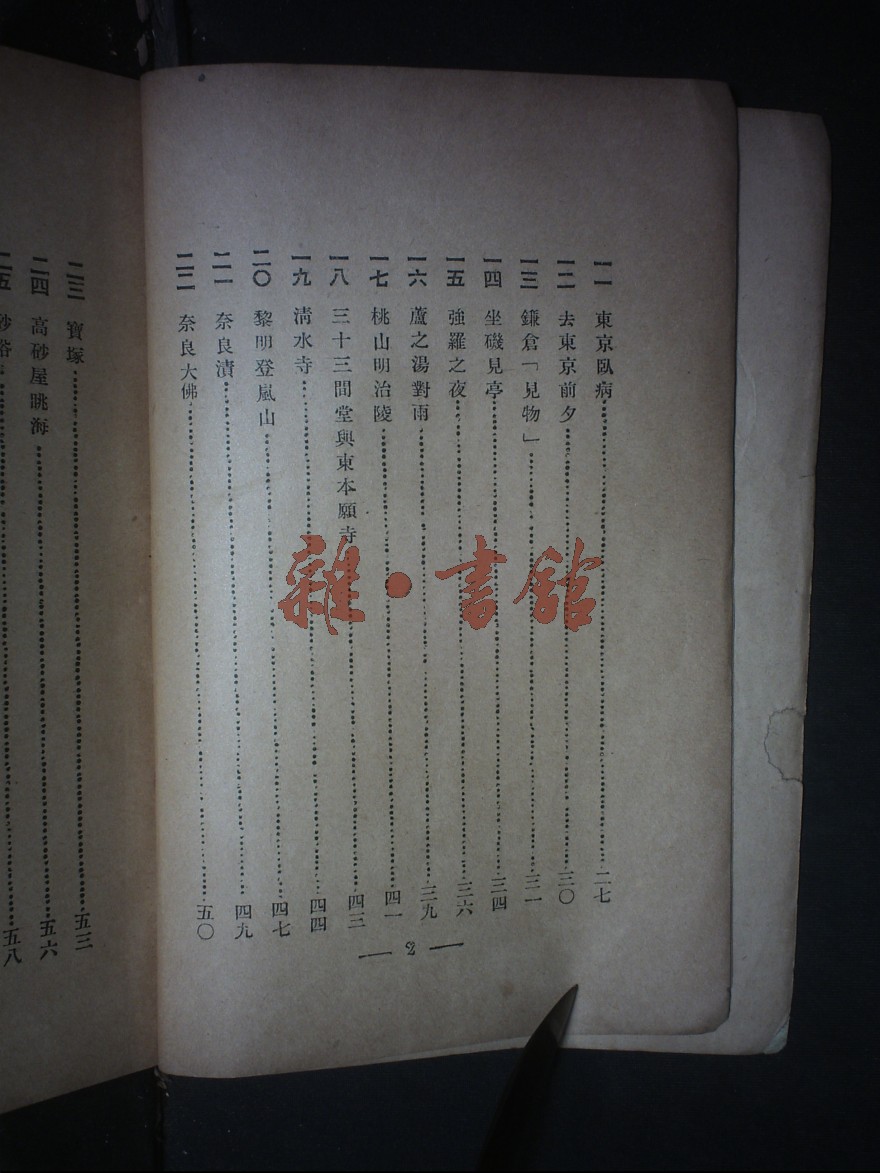 一一 東京臥病 二七
一二 去東京前夕 三〇
一三 鎌倉「見物」 三一
一四 坐磯見亭 三四
一五 強羅之夜 三六
一六 蘆之湯對雨 三九
一七 桃山明治陵 四一
一八 三十三間堂與東本願寺 四三
一九 清水寺 四四
二〇 黎明登嵐山 四七
二一 奈良漬 四九
二二 奈良大佛 五〇
— 2 —
二三 寶塚 五三
二四 高砂屋眺海 五六
二五 砂浴 五八
雜·書館